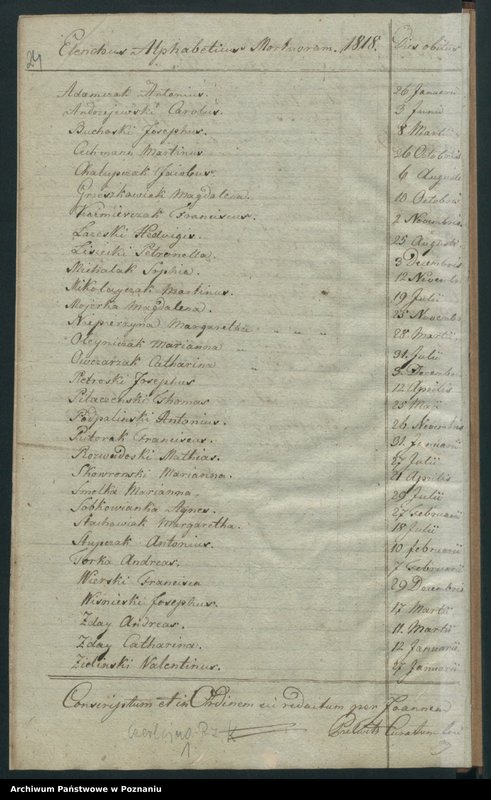 24
Elenchus Alphabeticus Mortuorum. 1818. Dies obitus
Adamczak Antonius. 26 Januarii
Andrzejewski Carolus. 3 Junii
Buchoski Josephus. 8 Martii
Cechmann Martinus 26 Octobris
Chałupczak Jacobus. 6 Augusti
Grzeszkowiak Magdalena. 10 Octobris
Kazmierczak Franciscus. 2 Novembris
Laceski Hedwigis. 25 Augusti
Lisiecki Petronella. 3 Decembris
Michalak Sophia. 12 Novemb
Mikołayczak Martinus. 19 Julii
Mojerka Magdalena. 25 Novemb
Niepierzyna Margaretha 28 Martii
Oleyniczak Marianna 31. Julii
Owczarzak Catharina 3. Decemb
Petroski Josephus 12 Aprilis
Pilaczenski Thomas 25 Maji
Podpalinski Antonius. 26 Novembris
Putorak Franciscus. 31. Januarii
Rozwadoski Mathias. 27 Julii
Skowronski Marianna. 21 Aprilis
Smolka Marianna. 29 Julii
Sobkowianka Agnes. 27 Februarii
Stachowiak Margaretha. 18 Julii
Stupczak Antonius. 10 Februarii
Torka Andreas. 7 Februarii
Wierski Francisca 29 Decembris
Wisnieski Josephus. 17 Martii
Zday Andreas. 11. Martii
Zday Catharina. 12 Januarii
Zielinski Valentinus. 27 Januarii
Conscriptum et in Ordinem sic redactum per Joannem
Curatum loci
1
Archiwum Państwowe w Poznaniu